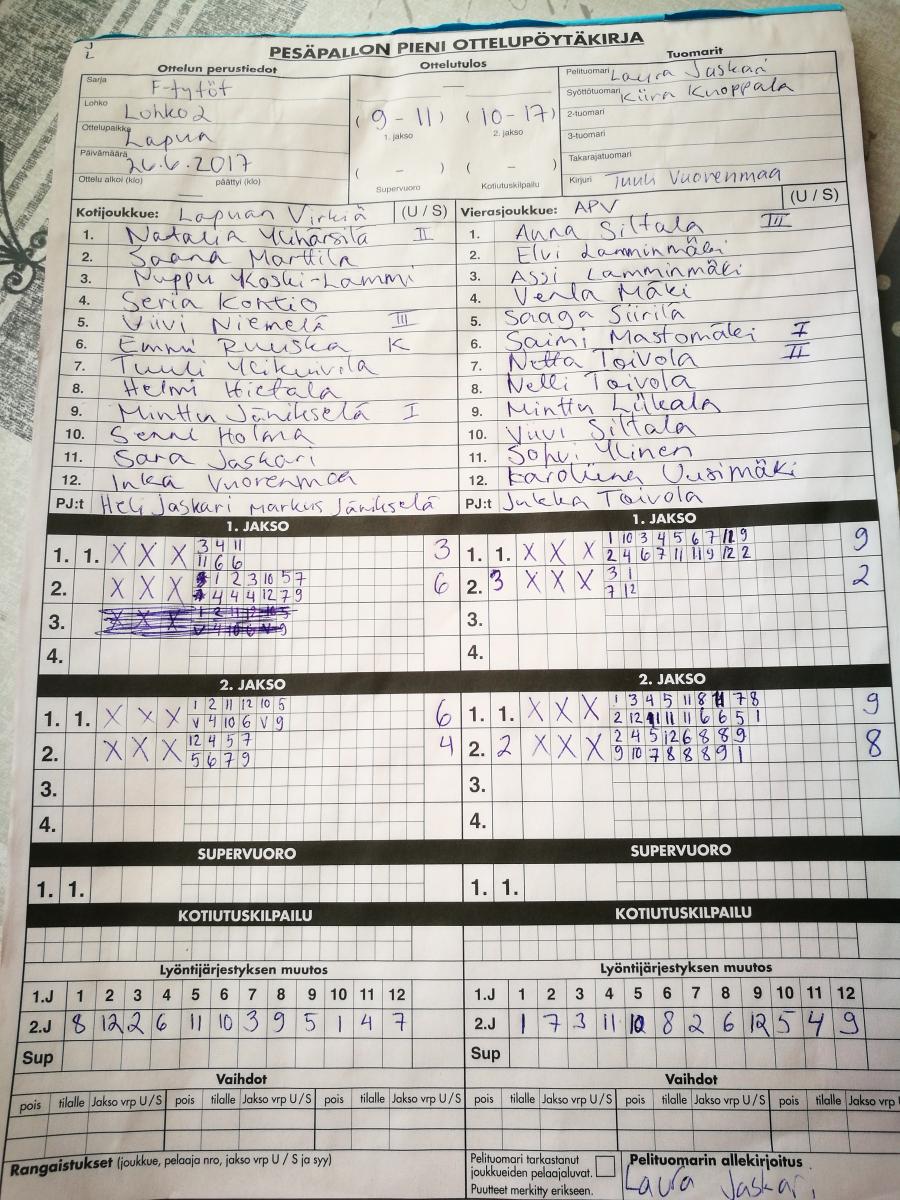 PESÄPALLON PIENI OTTELUPÖYTÄKIRJA
Ottelun perustiedot
Sarja F-tytöt
Lohko Lohko 2
Ottelupaikka Lapua
Päivämäärä 26.6.2017
Ottelu alkoi (klo) päättyi (klo)
Ottelutulos
—
( 9 - 11 ) ( 10 - 17 )
1. jakso 2. jakso
( - ) ( - )
Supervuoro Kotiutuskilpailu
Tuomarit
Pelituomari Laura Jaskari
Syöttötuomari Kiira Knoppala
2-tuomari
3-tuomari
Takarajatuomari
Kirjuri Tuuli Vuorenmaa
Kotijoukkue: Lapuan Virkiä (U / S)
1. Natalia Ylihärsilä II
2. Saana Marttila
3. Nuppu Koski-Lammi
4. Seria Kontio
5. Viivi Niemelä III
6. Emmi Ruuska K
7. Tuuli
8. Helmi Hietala
9. Minttu Jänikselä I
10. Senni Holma
11. Sara Jaskari
12. Inka Vuorenmaa
PJ:t Heli Jaskari Markus Jänikselä
Vierasjoukkue: APV (U / S)
1. Anna Siltala III
2. Elvi Lamminmäki
3. Assi Lamminmäki
4. Venla Mäki
5. Saaga Siirilä
6. Saimi Mastomäki I
7. Netta Toivola II
8. Nelli Toivola
9. Minttu
10. Viivi Siltala
11. Sohvi Ylinen
12. Karoliina Uusimäki
PJ:t Jukka Toivola
1. JAKSO
1. 1. X X X 3 4 11 3
11 6 6
2. X X X 1 2 3 10 5 7 6
4 4 4 12 7 9
3.
4.
1. JAKSO
1. 1. X X X 1 10 3 4 5 6 7 12 9 9
2 4 6 7 11 11 9 12 2
2. 3 X X X 3 1 2
7 12
3.
4.
2. JAKSO
1. 1. X X X 1 2 11 12 10 5 6
V 4 10 6 V 9
2. X X X 12 4 5 7 4
5 6 7 9
3.
4.
2. JAKSO
1. 1. X X X 1 3 4 5 11 8 11 7 8 9
2 12 11 11 11 6 6 5 1
2. 2 X X X 2 4 5 12 6 8 8 9 8
9 10 7 8 8 8 9 1
3.
4.
SUPERVUORO
1. 1.
SUPERVUORO
1. 1.
KOTIUTUSKILPAILU
KOTIUTUSKILPAILU
Lyöntijärjestyksen muutos
1.J 1 2 3 4 5 6 7 8 9 10 11 12
2.J 8 12 2 6 11 10 3 9 5 1 4 7
Sup
Lyöntijärjestyksen muutos
1.J 1 2 3 4 5 6 7 8 9 10 11 12
2.J 1 7 3 11 10 8 2 6 12 5 4 9
Sup
Vaihdot
pois tilalle Jakso vrp U / S pois tilalle Jakso vrp U / S pois tilalle Jakso vrp U / S
Vaihdot
pois tilalle Jakso vrp U / S pois tilalle Jakso vrp U / S pois tilalle Jakso vrp U
Rangaistukset (joukkue, pelaaja nro, jakso vrp U / S ja syy)
Pelituomari tarkastanut
joukkueiden pelaajaluvat.
Puutteet merkitty erikseen.
Pelituomarin allekirjoitus
Laura Jaskari